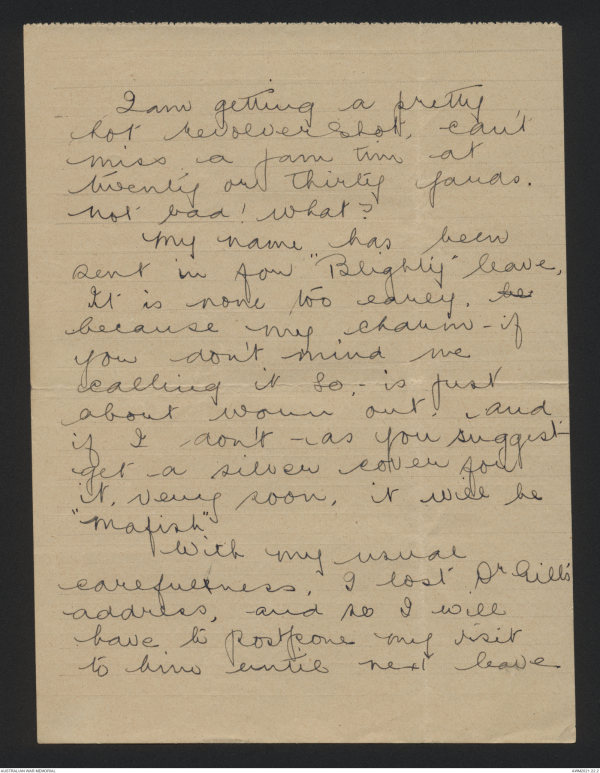 I am getting a pretty
hot revolver shot, can't
miss a jam tin at
twenty or thirty yards.
not bad! what?
My name has been
sent in for "Blighty" leave,
It is none too early, be
because my charm - if
you don't mind me
calling it so, - is just
about worn out, and
if I don't - as you suggest -
get a silver cover for
it, very soon, it will be
"Mafish"
With my usual
carefulness, I lost Dr Gill's
address, and so I will
have to postpone my visit
to him until next leave
AUSTRALIAN WAR MEMORIAL